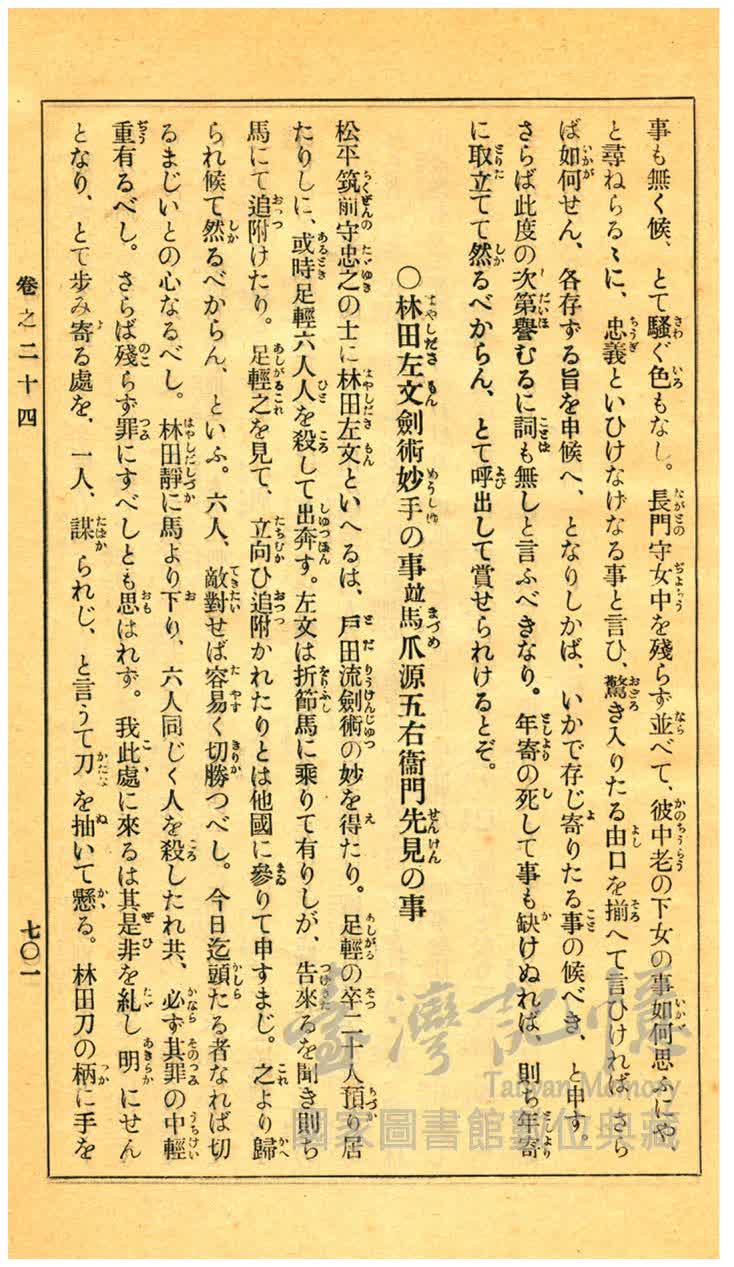 事も無く候、とて騷ぐ色もなし。長門守女中を殘らず並べて、彼中老の下女の事如何思ふにや、
と尋ねらるゝに、忠義といひけなげなる事と言ひ、驚き入りたる由口を揃へて言ひければ、さら
ば如何せん、各存ずる旨を申候へ、となりしかば、いかで存じ寄りたる事の候べき、と申す。
さらば此度の次第譽むるに詞も無しと言ふべきなり。年寄の死して事も缺けぬれば、則ち年寄
に取立てて然るべからん、とて呼出して賞せられけるとぞ。
〇林田左文劍術妙手の事竝馬爪源五右衞門先見の事
松平筑前守忠之の士に林田左文といへるは、戸田流劍術の妙を得たり。足輕の卒二十人預り居
たりしに、或時足輕六人人を殺して出奔す。左文は折節馬に乘りて有りしが、告來るを聞き則ち
馬にて追附けたり。足輕之を見て、立向ひ追附かれたりとは他國に參りて申すまじ。之より歸
られ候て然るべからん、といふ。六人、敵對せば容易く切勝つべし。今日迄頭たる者なれば切
るまじいとの心なるべし。林田靜に馬より下り、六人同じく人を殺したれ共、必ず其罪の中輕
重有るべし。さらば殘らず罪にすべしとも思はれず。我此處に來るは其是非を糺し明にせん
となり、とて步み寄る處を、一人、謀られじ、と言うて刀を抽いて懸る。林田刀の柄に手を
卷之二十四
七〇一
臺灣記憶
Taiwan Memory
國家圖書館數位典藏